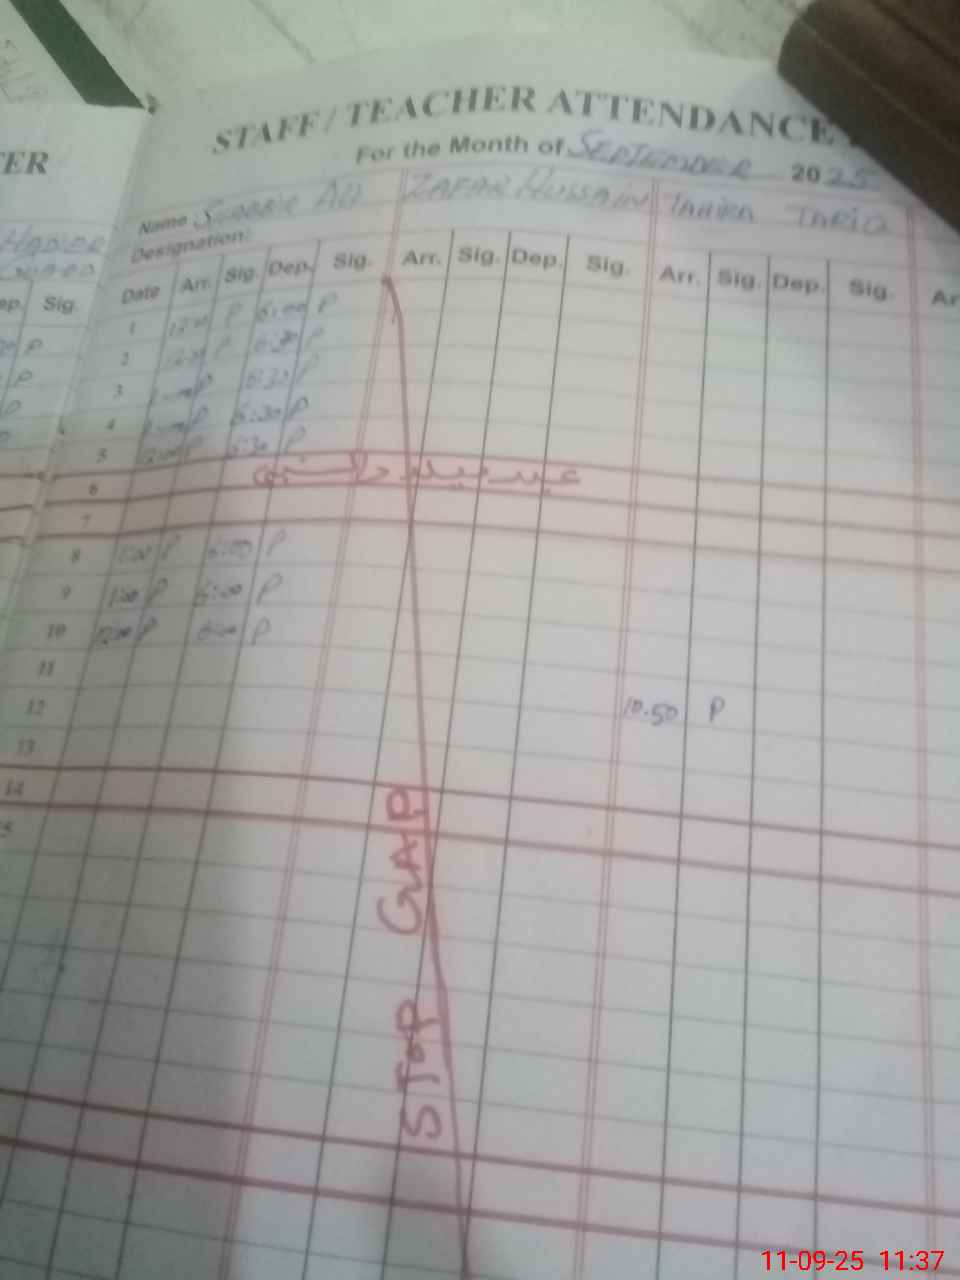 STAFF / TEACHER ATTENDANCE
TER
For the Month of SEPTEMBER 2025
Name ZAFAR HUSSAIN TAHIRA TARIQ
HAIDER
Designation:
Date Arr. Sig. Dep. Sig. Arr. Sig. Dep. Sig. Arr. Sig. Dep. Sig. Ar
ep. Sig.
1 12:00 P 6:00 P
2 P 6:30 P
3 P 6:30 P
4 P 6:30 P
5 P 6:30 P
عید میلاد النبی
6
7
8 1:00 P 6:00 P
9 1:00 P 6:00 P
10 12:00 P 6:00 P
11
12 10.50 P
13
14
5
STOP GAP
11-09-25 11:37